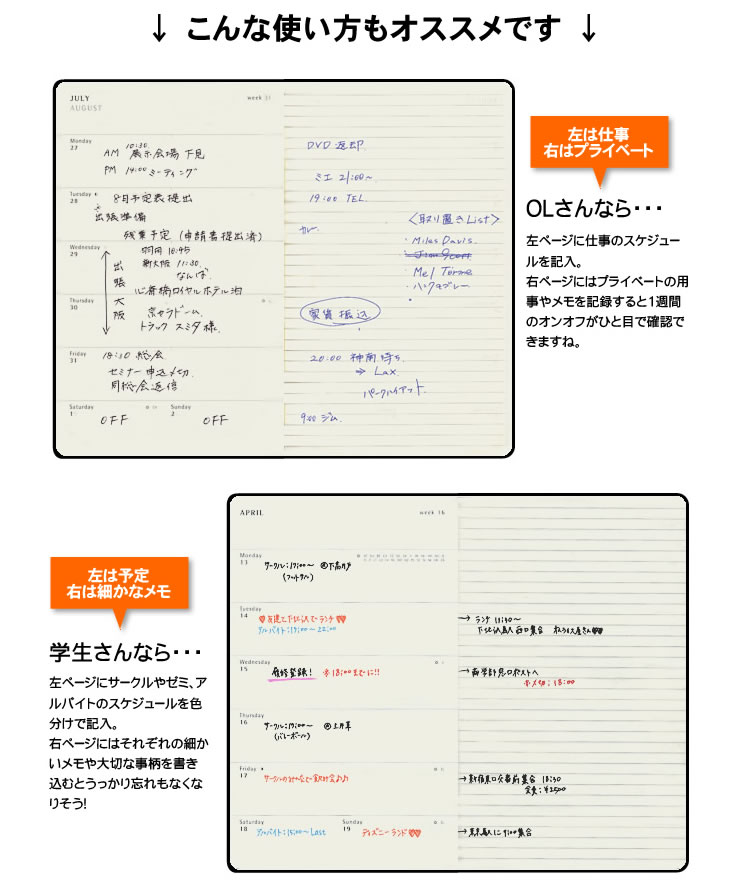 ↓ こんな使い方もオススメです ↓
JULY
AUGUST
week 31
Monday
27
AM 10:30 展示会場 下見
PM 14:00 ミーティング
Tuesday
28
8月予定表提出
出張準備
残業予定 (申請書提出済)
Wednesday
29
羽田 10:45
新大阪 11:30
なんば
心斎橋ロイヤルホテル泊
出張 大阪
Thursday
30
京セラドーム
トラック スミダ様
Friday
31
18:30 総会
セミナー申込〆切
Saturday
1
OFF
Sunday
2
OFF
DVD 返却
ミエ 21:00~
19:00 TEL
カレー
<取り置きList>
・Miles Davis
・Mel Torme
家賃振込
20:00 神南待ち
⇒ Lax
パークハイアット
9:00 ジム
左は仕事
右はプライベート
OLさんなら・・・
左ページに仕事のスケジュー
ルを記入。
右ページにはプライベートの用
事やメモを記録すると1週間
のオンオフがひと目で確認で
きますね。
左は予定
右は細かなメモ
学生さんなら・・・
左ページにサークルやゼミ、ア
ルバイトのスケジュールを色
分けで記入。
右ページにはそれぞれの細か
いメモや大切な事柄を書き
込むとうっかり忘れもなくな
りそう!
APRIL
week 16
Monday
13
サークル:17:00~ @下高井戸
(フットサル)
Tuesday
14
♡友達と下北沢でランチ♡♡
アルバイト:17:00~22:00
→ ランチ 11:30~
下北沢駅 西口集合
Wednesday
15
履修登録! ※18:00までに!!
→ 商学部窓口ポストへ
※〆切:18:00
Thursday
16
サークル:17:00~
(バレーボール)
Friday
17
→ 新宿東口交番前集合 18:30
会費:¥2500
Saturday
18
アルバイト:15:00~Last
Sunday
19
ディズニーランド♡♡
→ 東京駅に9:00集合